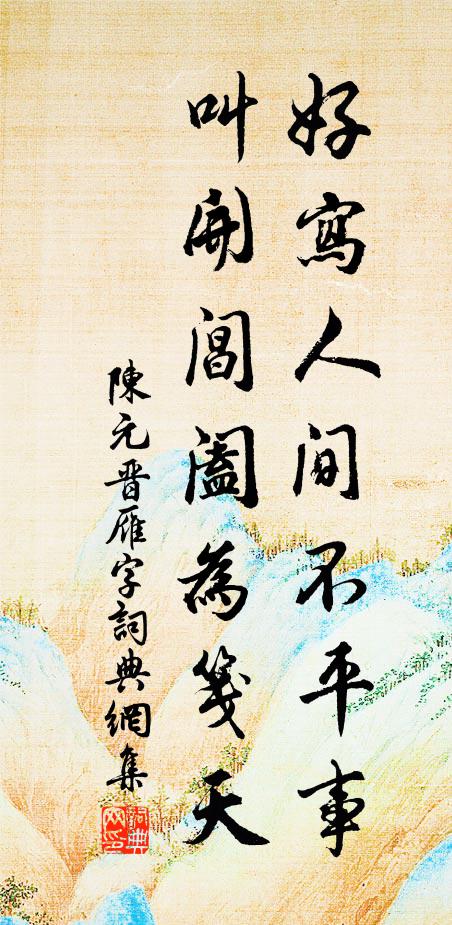 好寫人間不平事
叫開閶闔為箋天
陳元晉雁字詞典網集
詞典
网印